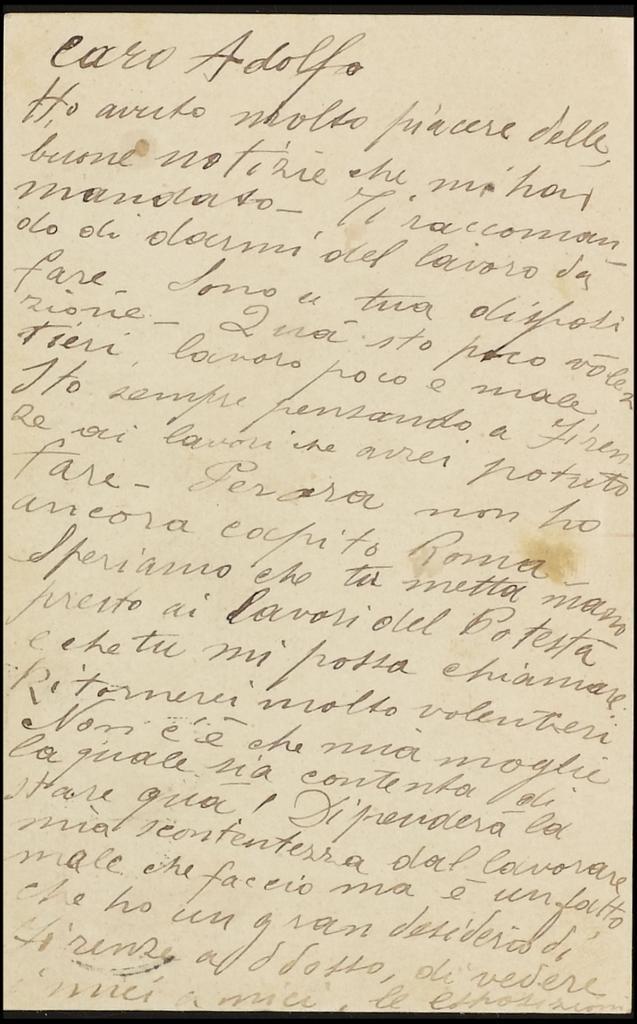 Caro Adolfo
Ho avuto molto piacere delle
buone notizie che mi hai
mandato - Ti raccoman
do di darmi del lavoro da
fare - Sono a tua disposi
zione - Quà sto poco volen
tieri, lavoro poco e male
Sto sempre pensando a Firen
ze ai lavori che avrei potuto
fare - Per ora non ho
ancora capito Roma
Speriamo che tu metta mano
presto ai lavori del Potestà
e che tu mi possa chiamare.
Ritornerei molto volentieri
Non c'è che mia moglie
la quale sia contenta di
stare quà! Dipenderà la
mia scontentezza dal lavorare
male che faccio ma è un fatto
che ho un gran desiderio di
Firenze addosso, di vedere
i miei amici, le esposizioni